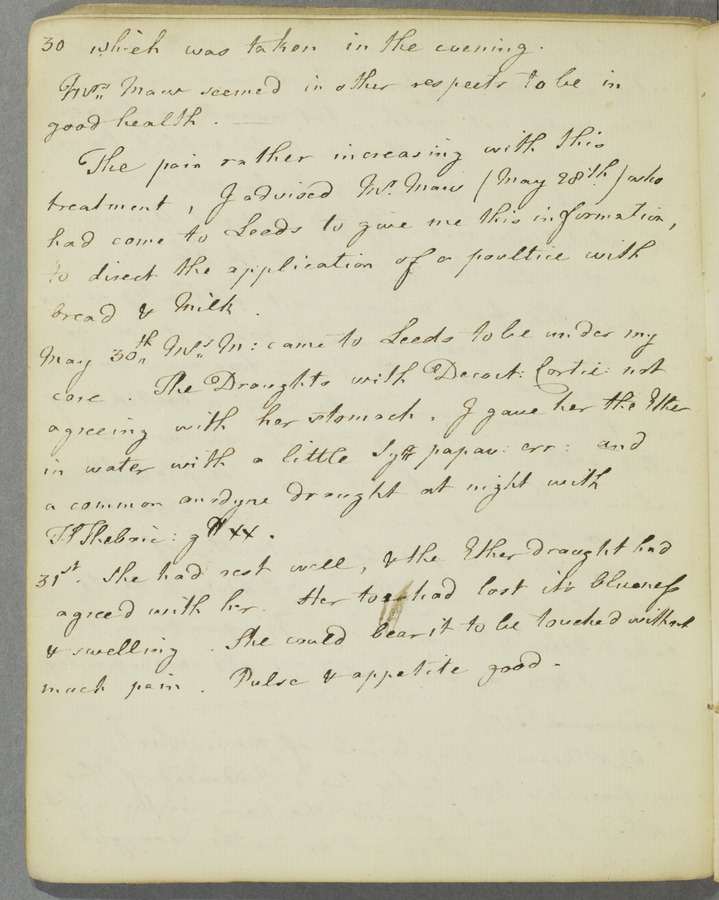 30 which was taken in the evening.
Mrs. Maw seemed in other respects to be in
good health. —
The pain rather increasing with this
treatment, I advised Mr. Maw (May 28th) who
had come to Leeds to give me this information,
to direct the application of a poultice with
bread & Milk.
May 30th Mrs. M: came to Leeds to be under my
care. The Draughts with Decoct: Cortic: not
agreeing with her stomach, I gave her the Ether
in water with a little Syr papav: err: and
a common anodyne draught at night with
Tr Thebaic: gtt xx.
31st. She had rest well, & the Ether draught had
agreed with her. Her toe had lost its blueness
& swelling. She could bear it to be touched without
much pain. Pulse & appetite good.